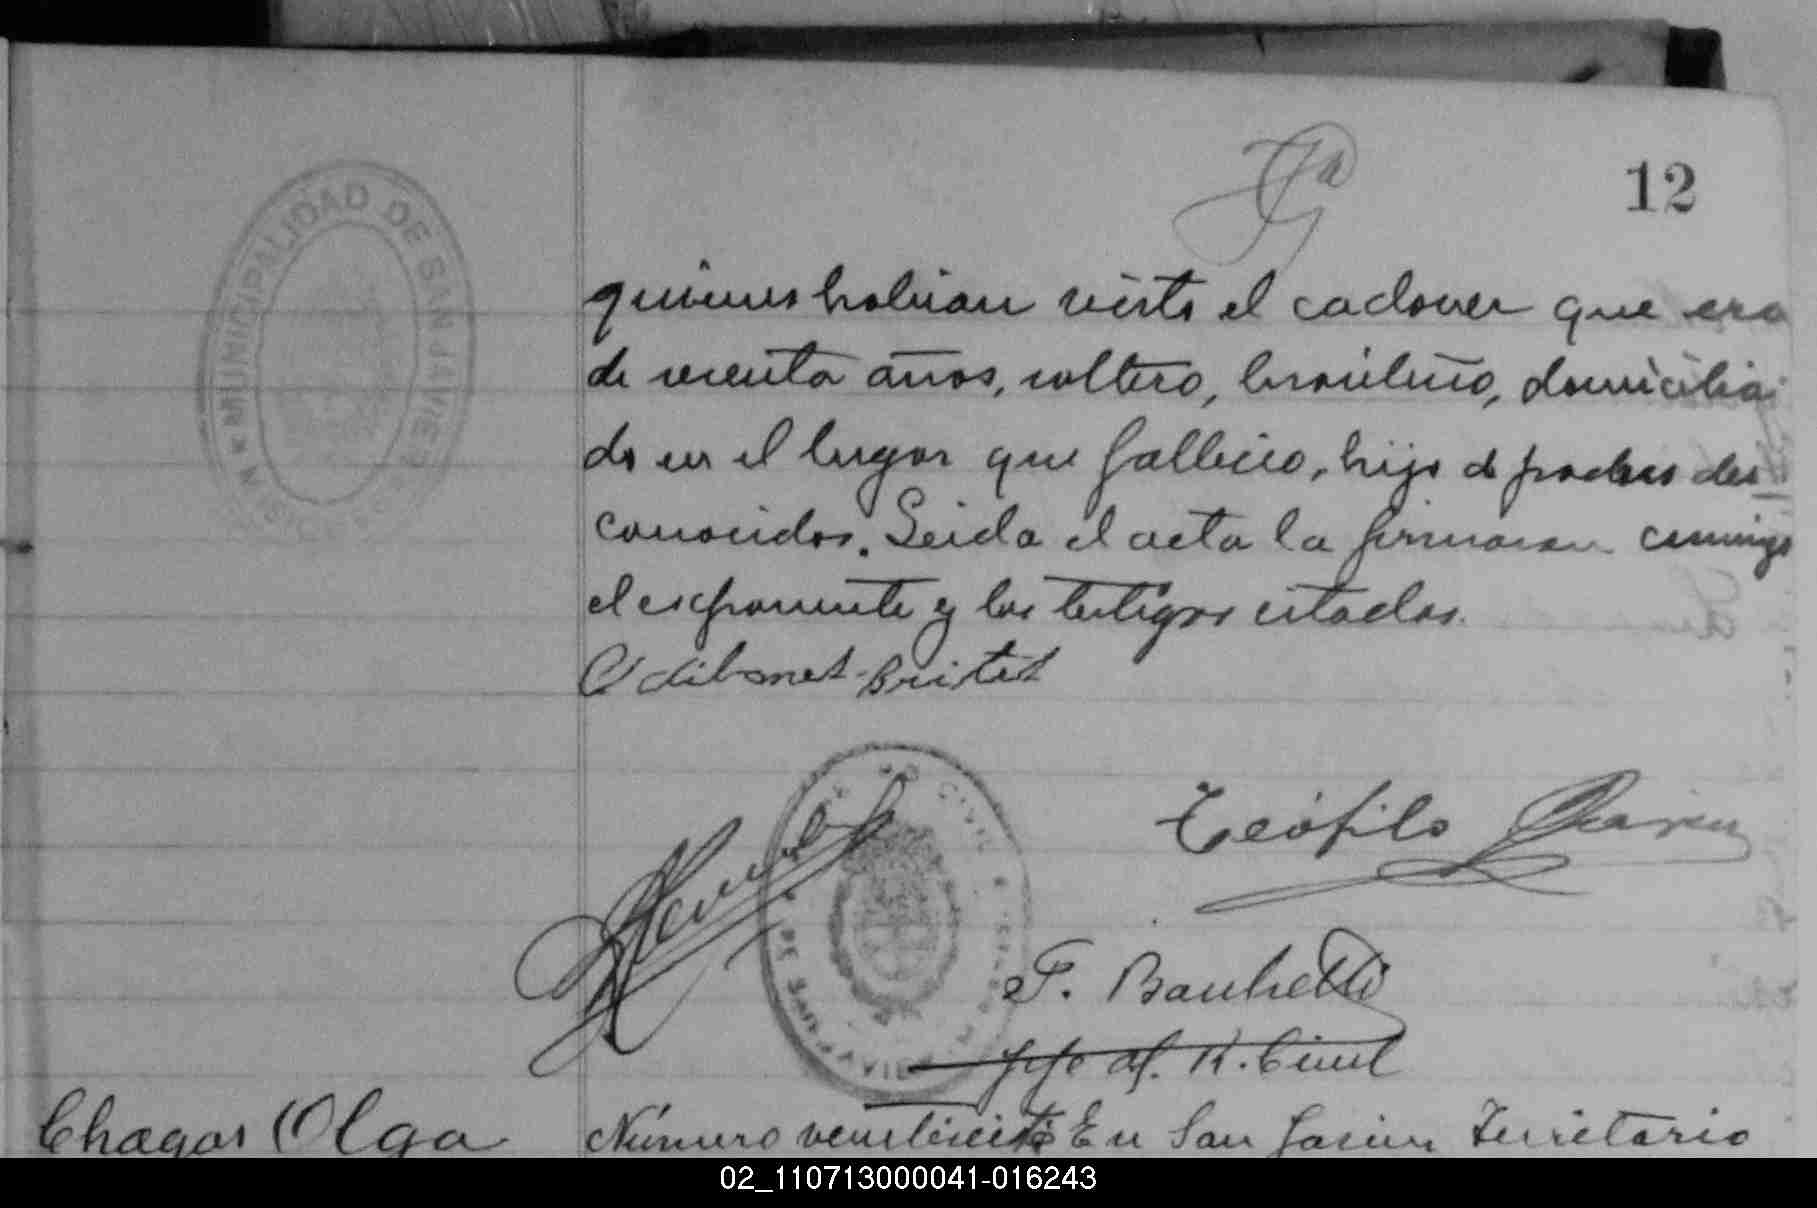 12
MUNICIPALIDAD DE SAN JAVIER
quienes habian visto el cadaver que era
de años, soltero, brasileño, domicilia
do en el lugar que fallecio, hijo de padres des
conocidos. Leida el acta la firmaron conmigo
el exponente y los testigos citados.
Britez
Teófilo
F. Banhetti
Jefe of. R. Civil
Chagas Olga
Número En San Javier Territorio
02_110713000041-016243